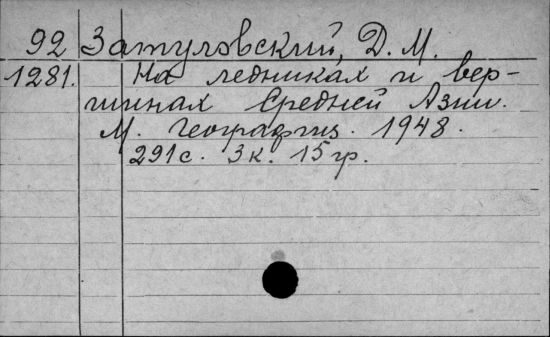 92 Затуловский, Д. М.
1281. На ледниках и вер-
шинах Средней Азии.
М. Географгиз. 1948.
291 с. 3 к. 15 гр.